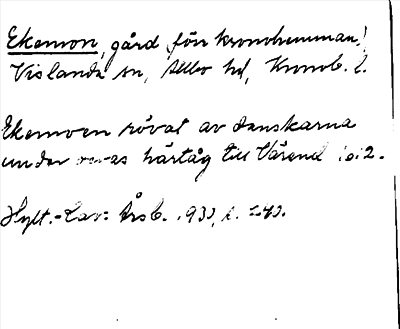 Ekemon, gård, förr kronohemman,
Vislanda sn, Allbo hd, Kronob. l.
Ekemoen rövat av danskarna
under deras härtåg till Värend 1612.
Hylt.-Cav: Årsb. 1930, s. 240.